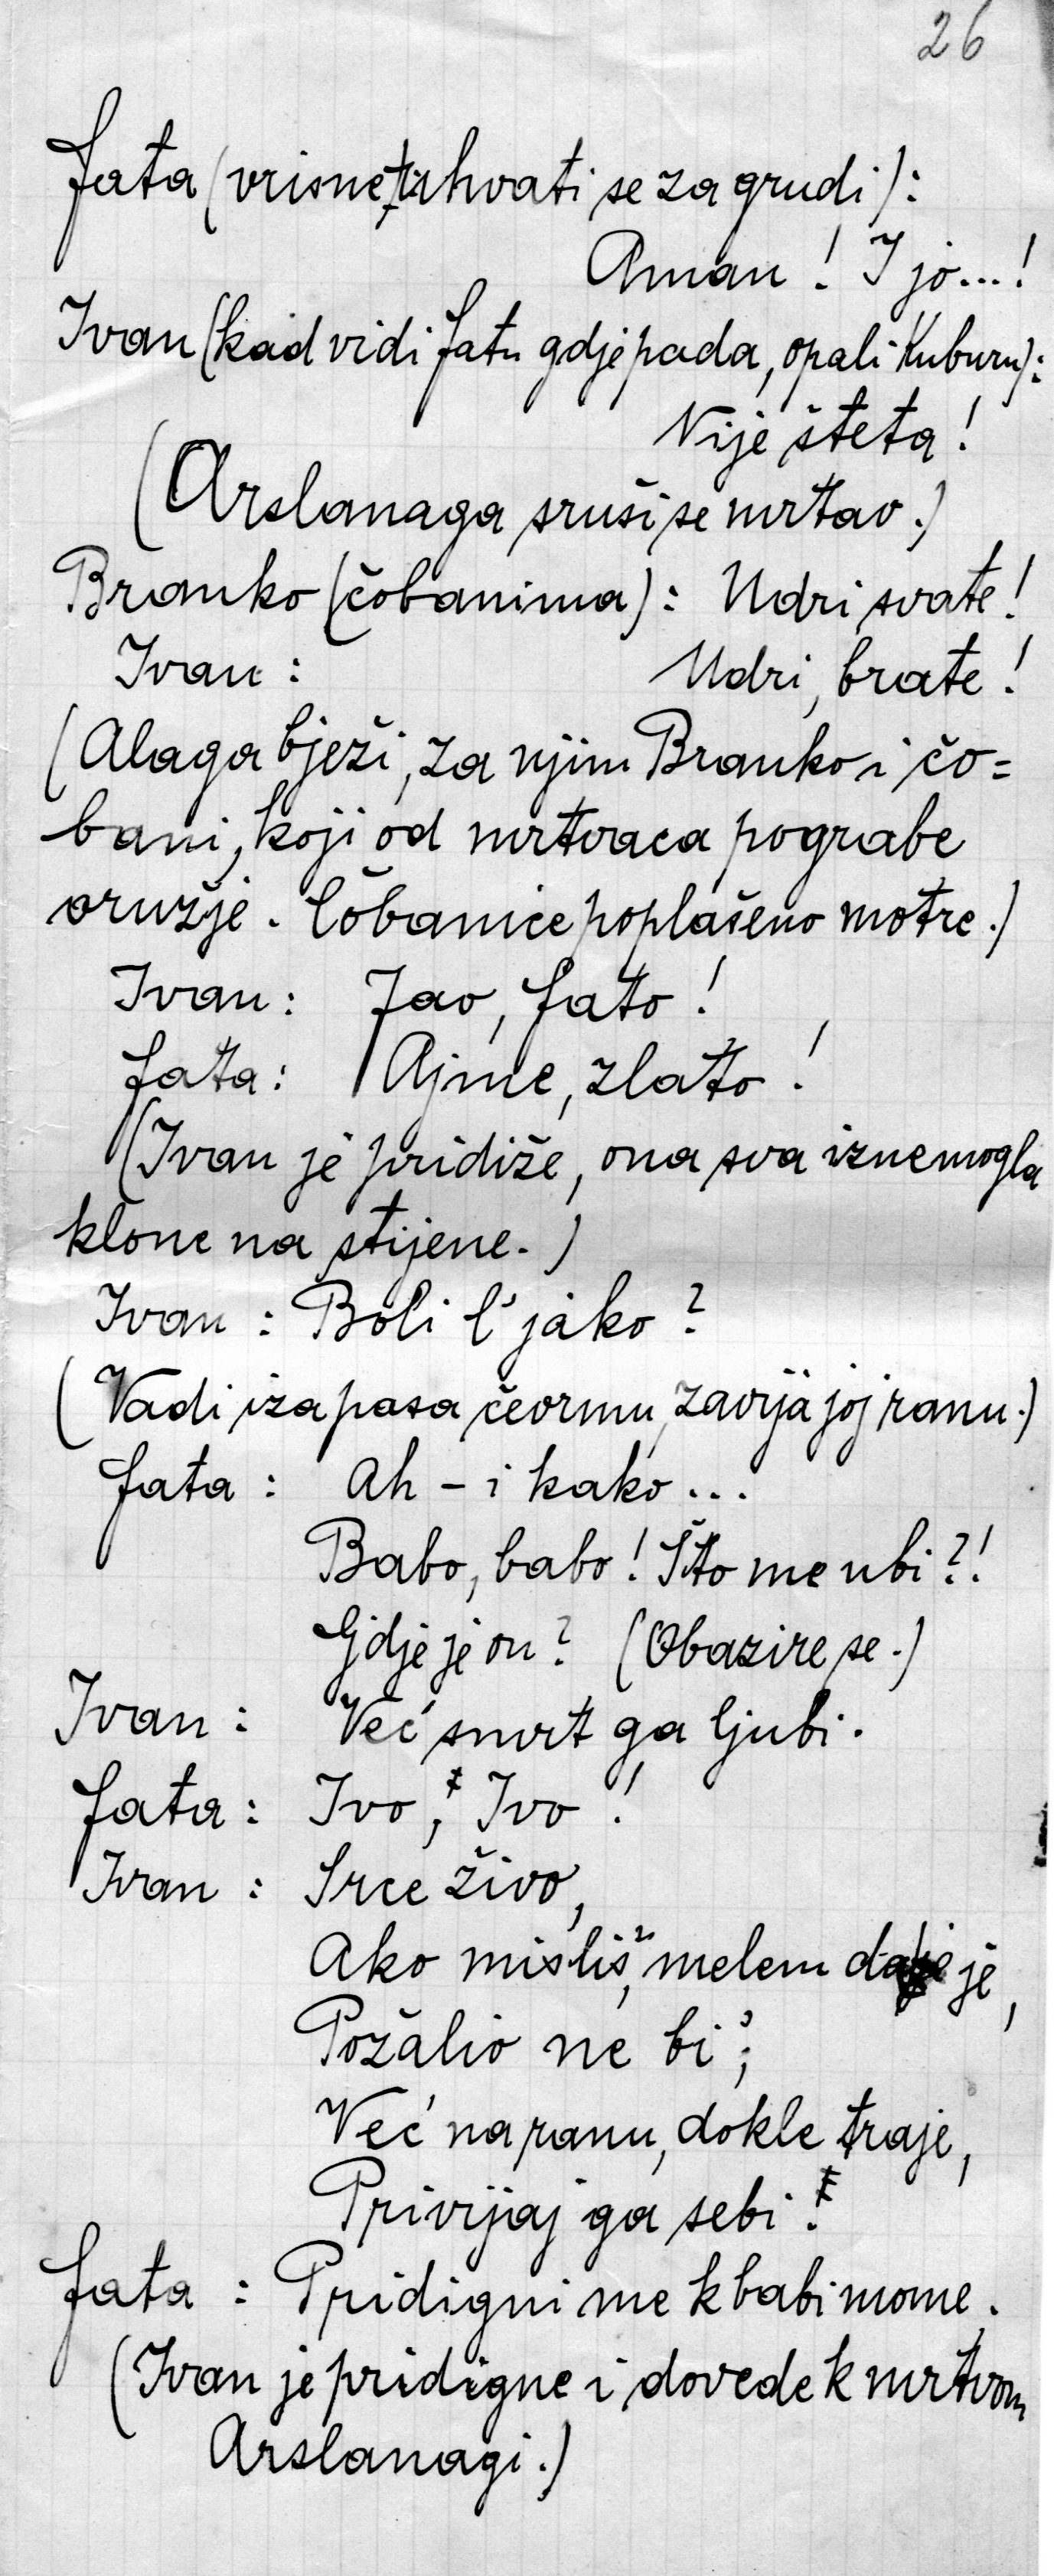 26
Fata (vrisne, uhvati se za grudi):
Aman! I jo...!
Ivan (kad vidi Fatu gdje pada, opali kuburu):
Nije šteta!
(Arslanaga sruši se mrtav.)
Branko (čobanima): Udri svate!
Ivan: Udri, brate!
(Alaga bježi, za njim Branko i čo=
bani, koji od mrtvaca pograbe
oružje. Čobanice poplašeno motre.)
Ivan: Jao, Fato!
Fata: Ajme, zlato!
(Ivan je pridiže, ona sva iznemogla
klone na stijene.)
Ivan: Boli l' jako?
(Vadi iza pasa čevrmu, zavija joj ranu.)
Fata: Ah - i kako...
Babo, babo! Što me ubi?!
Gdje je on? (Obazire se.)
Ivan: Već smrt ga ljubi.
Fata: Ivo, Ivo!
Ivan: Srce živo,
Ako misliš, melem da je,
Požalio ne bi;
Već na ranu, dokle traje,
Privijaj ga sebi!
Fata: Pridigni me k babi mome.
(Ivan je pridigne i dovede k mrtvom
Arslanagi.)